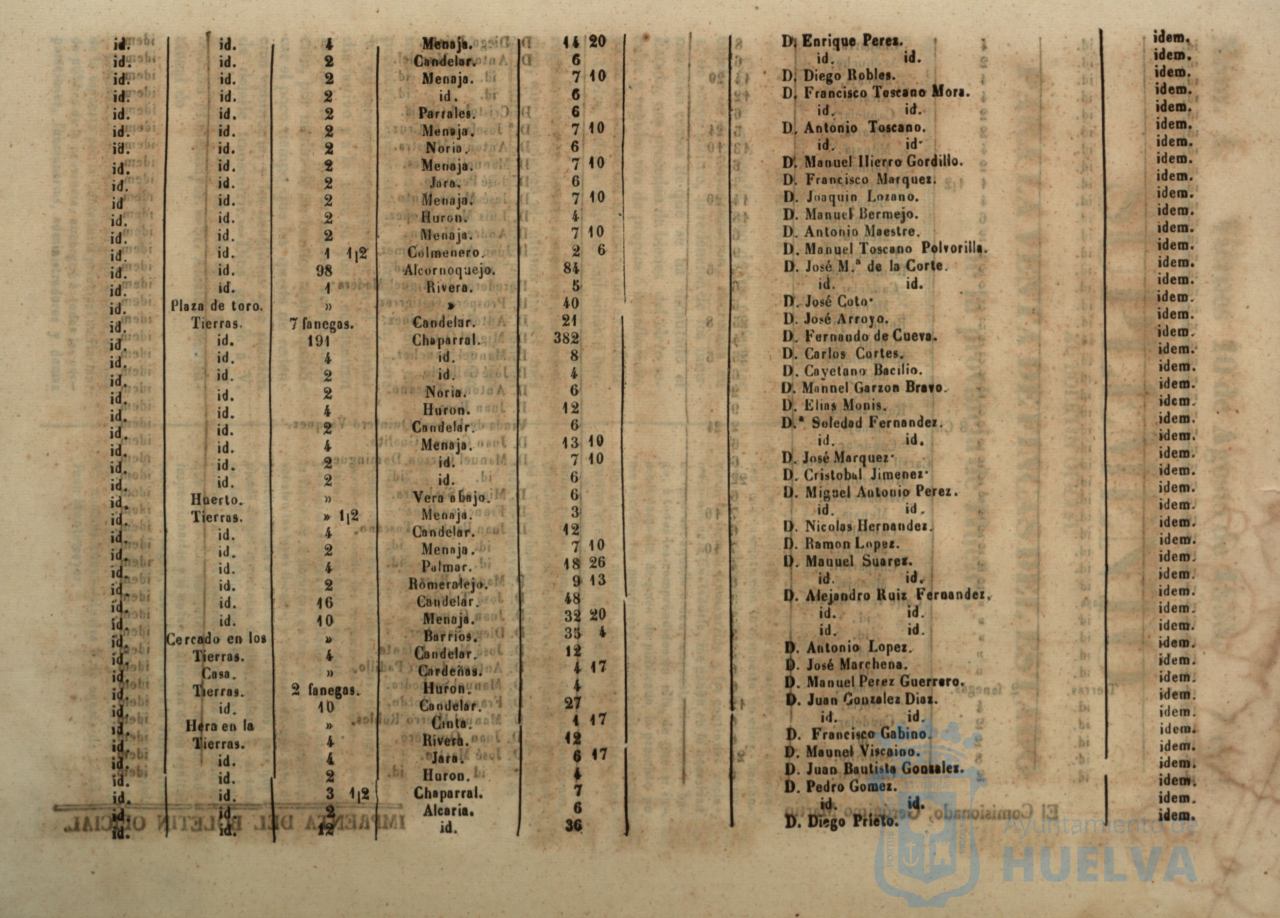 id. id. 4 Menaja. 14 20 D. Enrique Perez. idem.
id. id. 2 Candelar. 6 id. id. idem.
id. id. 2 Menaja. 7 10 D. Diego Robles. idem.
id. id. 2 id. 6 D. Francisco Toscano Mora. idem.
id. id. 2 Parrales. 6 id. id. idem.
id. id. 2 Menaja. 7 10 D. Antonio Toscano. idem.
id. id. 2 Noria. 6 id. id· idem.
id. id. 2 Menaja. 7 10 D. Manuel Hierro Gordillo. idem.
id. id. 2 Jara. 6 D. Francisco Marquez. idem.
id id. 2 Menaja. 7 10 D. Joaquin Lozano. idem.
id. id. 2 Huron. 4 D. Manuel Bermejo. idem.
id. id. 2 Menaja. 7 10 D. Antonio Maestre. idem.
id. id. 1 1|2 Colmenero. 2 6 D. Manuel Toscano Polvorilla. idem.
id. id. 98 Alcornoquejo. 84 D. José M.ª de la Corte. idem.
id. id. 1 Rivera. 5 id. id. idem.
id. Plaza de toro. » » 40 D. José Coto· idem.
id. Tierras. 7 fanegas. Candelar. 21 D. José Arroyo. idem.
id. id. 191 Chaparral. 382 D. Fernando de Cueva. idem.
id. id. 4 id. 8 D. Carlos Cortes. idem.
id. id. 2 id. 4 D. Cayetano Bacilio. idem.
id. id. 2 Noria. 6 D. Mannel Garzon Bravo. idem.
id. id. 4 Huron. 12 D. Elias Monis. idem.
id. id. 2 Candelar. 6 D.ª Soledad Fernandez. idem.
id. id. 4 Menaja. 13 10 id. id. idem.
id. id. 2 id. 7 10 D. José Marquez· idem.
id. id. 2 id. 6 D. Cristobal Jimenez· idem.
id. Huerto. » Vera abajo. 6 D. Miguel Antonio Perez. idem.
id. Tierras. » 1|2 Menaja. 3 id. id. idem.
id. id. 4 Candelar. 12 D. Nicolas Hernandez. idem.
id. id. 2 Menaja. 7 10 D. Ramon Lopez. idem.
id. id. 4 Palmar. 18 26 D. Manuel Suarez. idem.
id. id. 2 Romeralejo. 9 13 id. id. idem.
id. id. 16 Candelar. 48 D. Alejandro Ruiz Fernandez. idem.
id. id. 10 Menaja. 32 20 id. id. idem.
id. Cercado en los » Barrios. 35 4 id. id. idem.
id. Tierras. 4 Candelar. 12 D. Antonio Lopez. idem.
id. Casa. » Cardeñas. 4 17 D. José Marchena. idem.
id. Tierras. 2 fanegas. Huron. 4 D. Manuel Perez Guerrero. idem.
id. id. 10 Candelar. 27 D. Juan Gonzalez Diaz. idem.
id. Hera en la » Cinta. 1 17 id. id. idem.
id. Tierras. 4 Rivera. 12 D. Francisco Gabino. idem.
id. id. 4 Jara. 6 17 D. Maunel Viscaino. idem.
id. id. 2 Huron. 4 D. Juan Bautista Gonzalez. idem.
id. id. 3 1|2 Chaparral. 7 D. Pedro Gomez. idem.
id. id. 2 Alcaria. 6 id. id. idem.
id. id. 12 id. 36 D. Diego Prieto. idem.
Ayuntamiento de
HUELVA